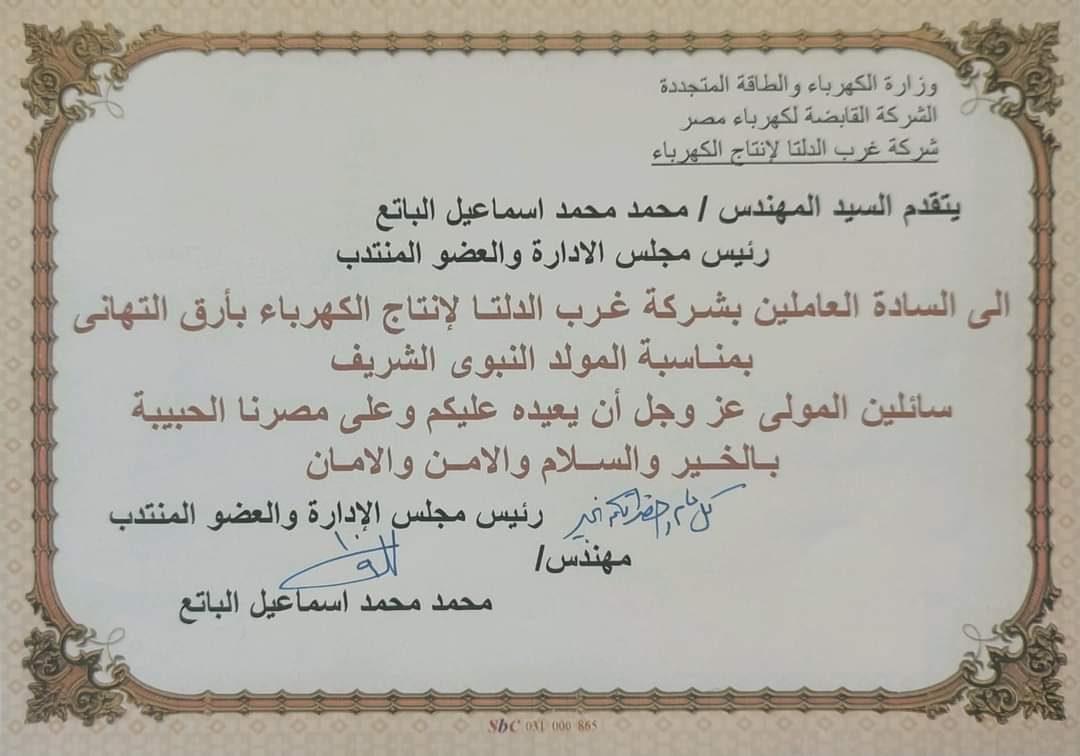 وزارة الكهرباء والطاقة المتجددة
الشركة القابضة لكهرباء مصر
شركة غرب الدلتا لإنتاج الكهرباء
يتقدم السيد المهندس / محمد محمد اسماعيل الباتع
رئيس مجلس الادارة والعضو المنتدب
الى السادة العاملين بشركة غرب الدلتا لإنتاج الكهرباء بأرق التهانى
بمناسبة المولد النبوى الشريف
سائلين المولى عز وجل أن يعيده عليكم وعلى مصرنا الحبيبة
بالخير والسلام والامن والامان
كل عام وحضراتكم بخير
رئيس مجلس الإدارة والعضو المنتدب
مهندس/
محمد محمد اسماعيل الباتع
SbC 031 000 865